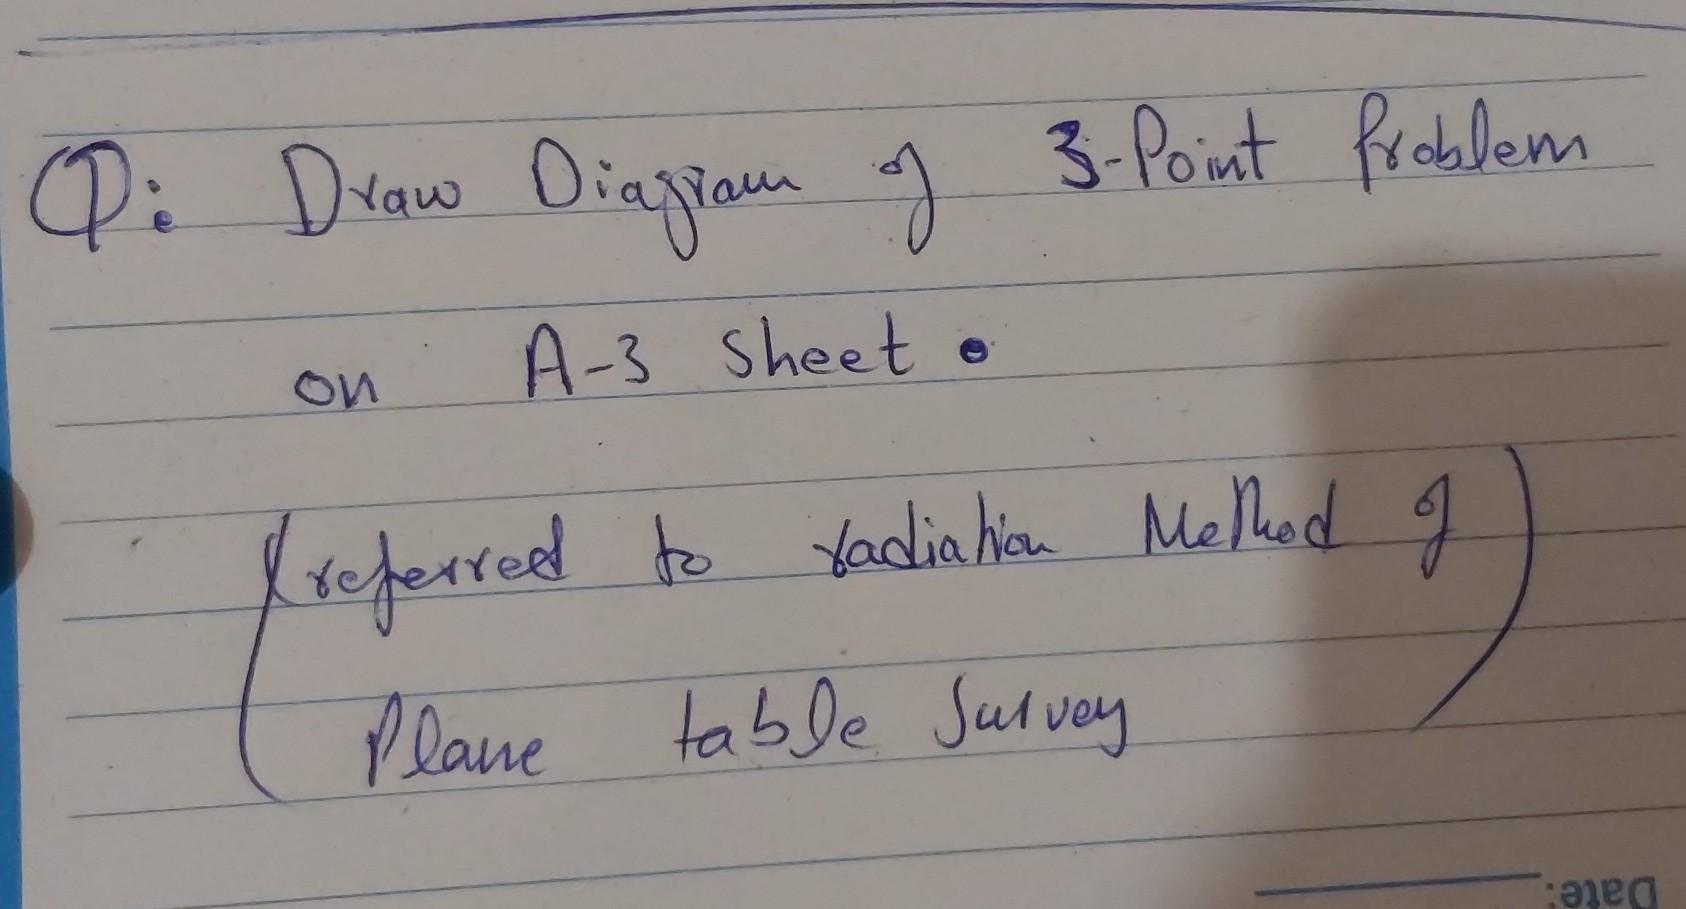 Q: Draw Diagram of 3-Point Problem
on A-3 Sheet.
(referred to radiation Method of
Plane table Survey)
Date: